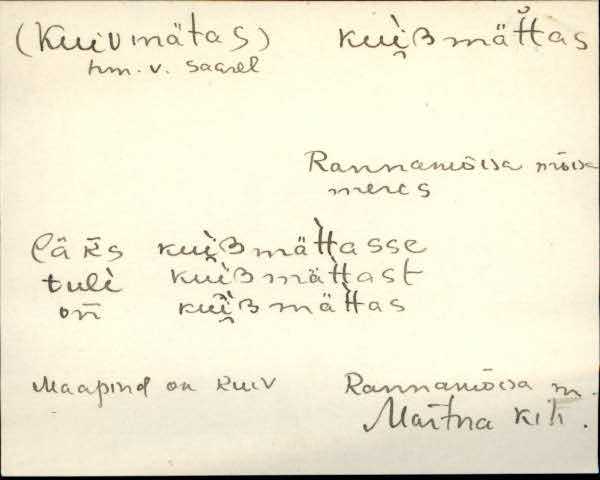 (Kuivmätas) kui̭ʙmät̆tas
hm. v. saarel
Rannamõisa mõisa
meres
lä̂k̄s kuì̭ʙmät̀tasse
tulì kuì̭ʙmät̀tast
on̄ kuì̭ʙmät̀tas
Maapind on kuiv Rannamõisa m.
Martna kih.